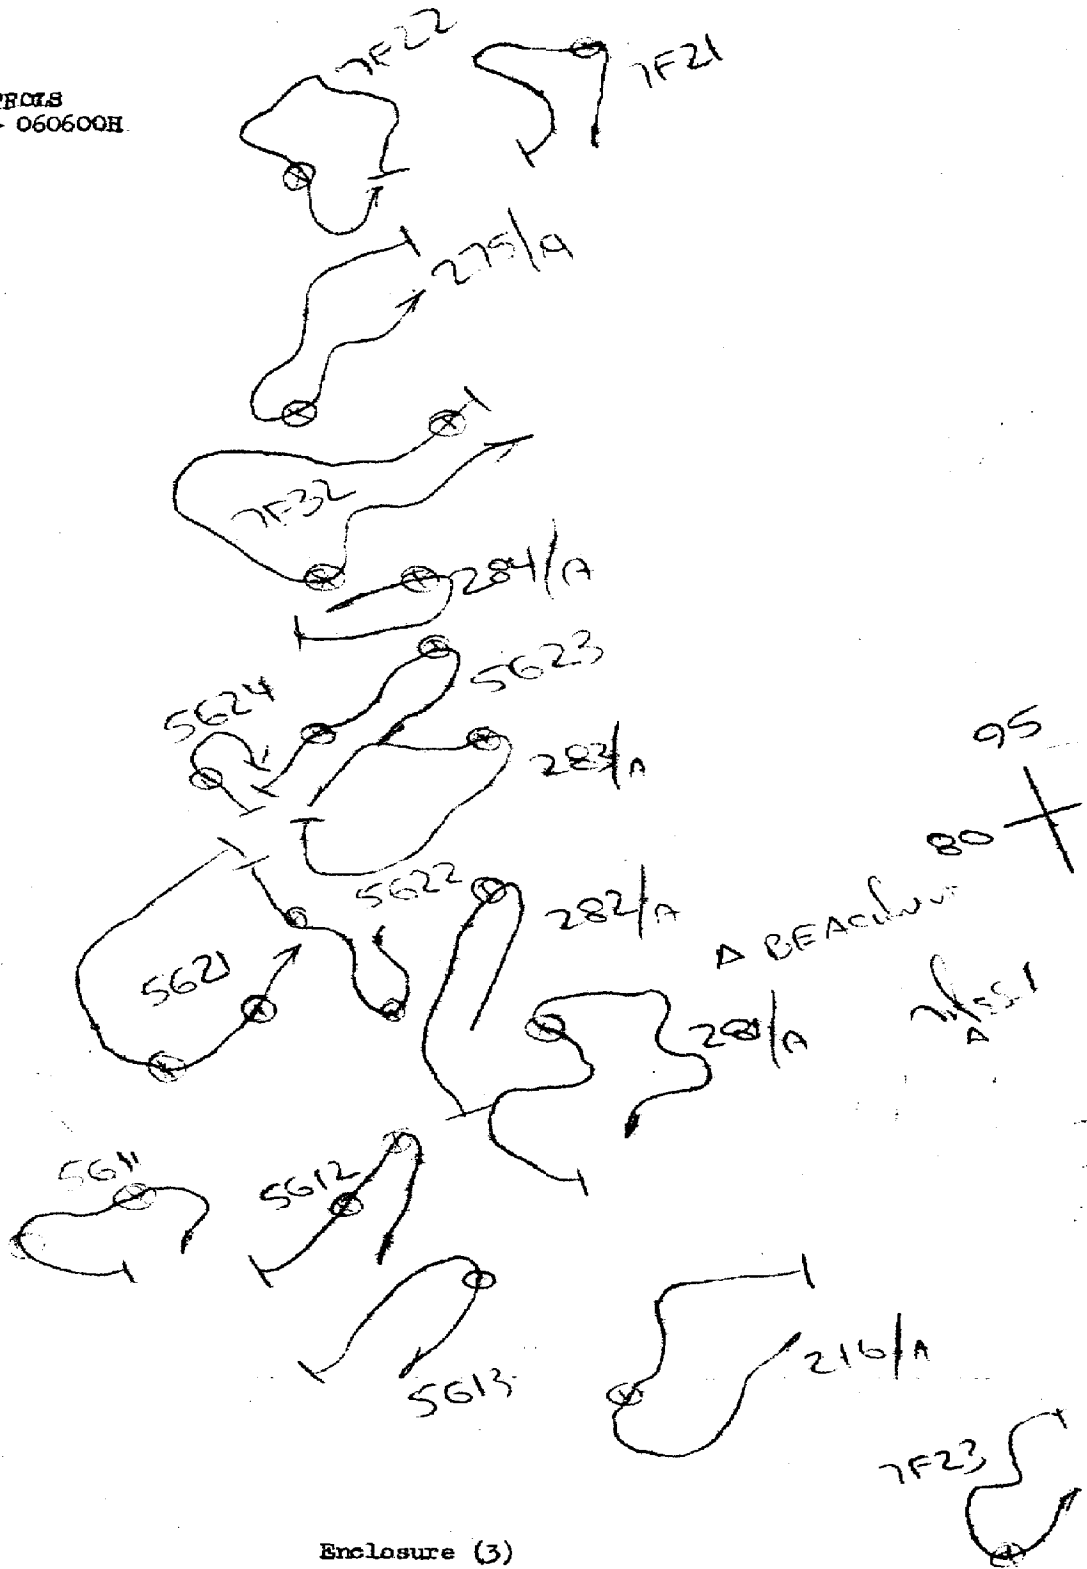 060600H
7F22
7F21
275/A
7F32
284/A
5G23
5G24
283/A
95
80
5G22
282/A
5G21
281/A
5G11
5G12
5G13
216/A
7F23
Enclosure (3)